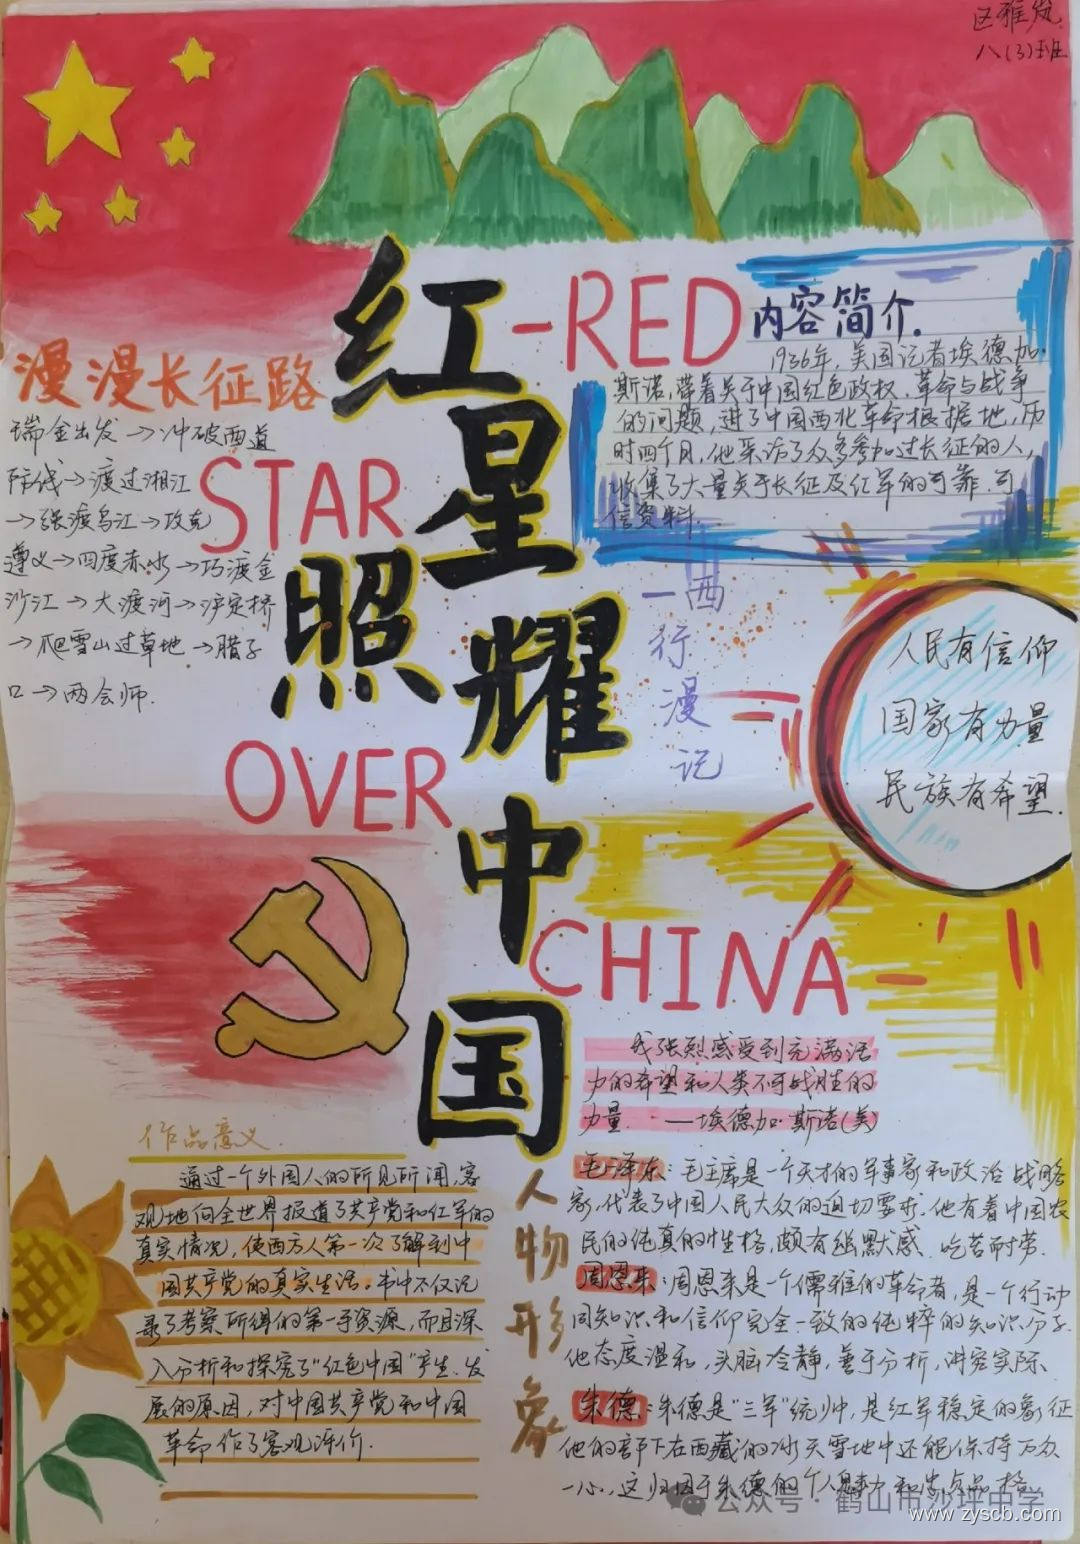 区雅岚
八(3)班
红星照耀中国
-RED
STAR
OVER
CHINA-
一西行漫记
漫漫长征路
瑞金出发→冲破两道
防线→渡过湘江
→强渡乌江→攻克
遵义→四度赤水→巧渡金
沙江→大渡河→泸定桥
→爬雪山过草地→腊子
口→两会师.
内容简介.
1936年,美国记者埃德加·
斯诺,带着关于中国红色政权、革命与战争
的问题,进了中国西北革命根据地,历
时四个月,他采访了众多参加过长征的人,
收集了大量关于长征及红军的可靠、可
信资料.
人民有信仰
国家有力量
民族有希望.
我强烈感受到充满活
力的希望和人类不可战胜的
力量 ——埃德加·斯诺(美)
作品意义
通过一个外国人的所见所闻,客
观地向全世界报道了共产党和红军的
真实情况,使西方人第一次了解到中
国共产党的真实生活。书中不仅记
录了考察所得的第一手资源,而且深
入分析和探究了"红色中国"产生、发
展的原因,对中国共产党和中国
革命作了客观评价.
人物形象
毛泽东:毛主席是一个天才的军事家和政治战略
家,代表了中国人民大众的迫切要求.他有着中国农
民的纯真的性格,颇有幽默感、吃苦耐劳.
周恩来:周恩来是一个儒雅的革命者,是一个行动
同知识和信仰完全一致的纯粹的知识分子.
他态度温和,头脑冷静,善于分析,讲究实际.
朱德:朱德是"三军"统帅,是红军稳定的象征
他的部下在西藏的冰天雪地中还能保持万众
一心,这归因于朱德的个人魅力和忠贞品格.
公众号·鹤山市沙坪中学
www.zyscb.com